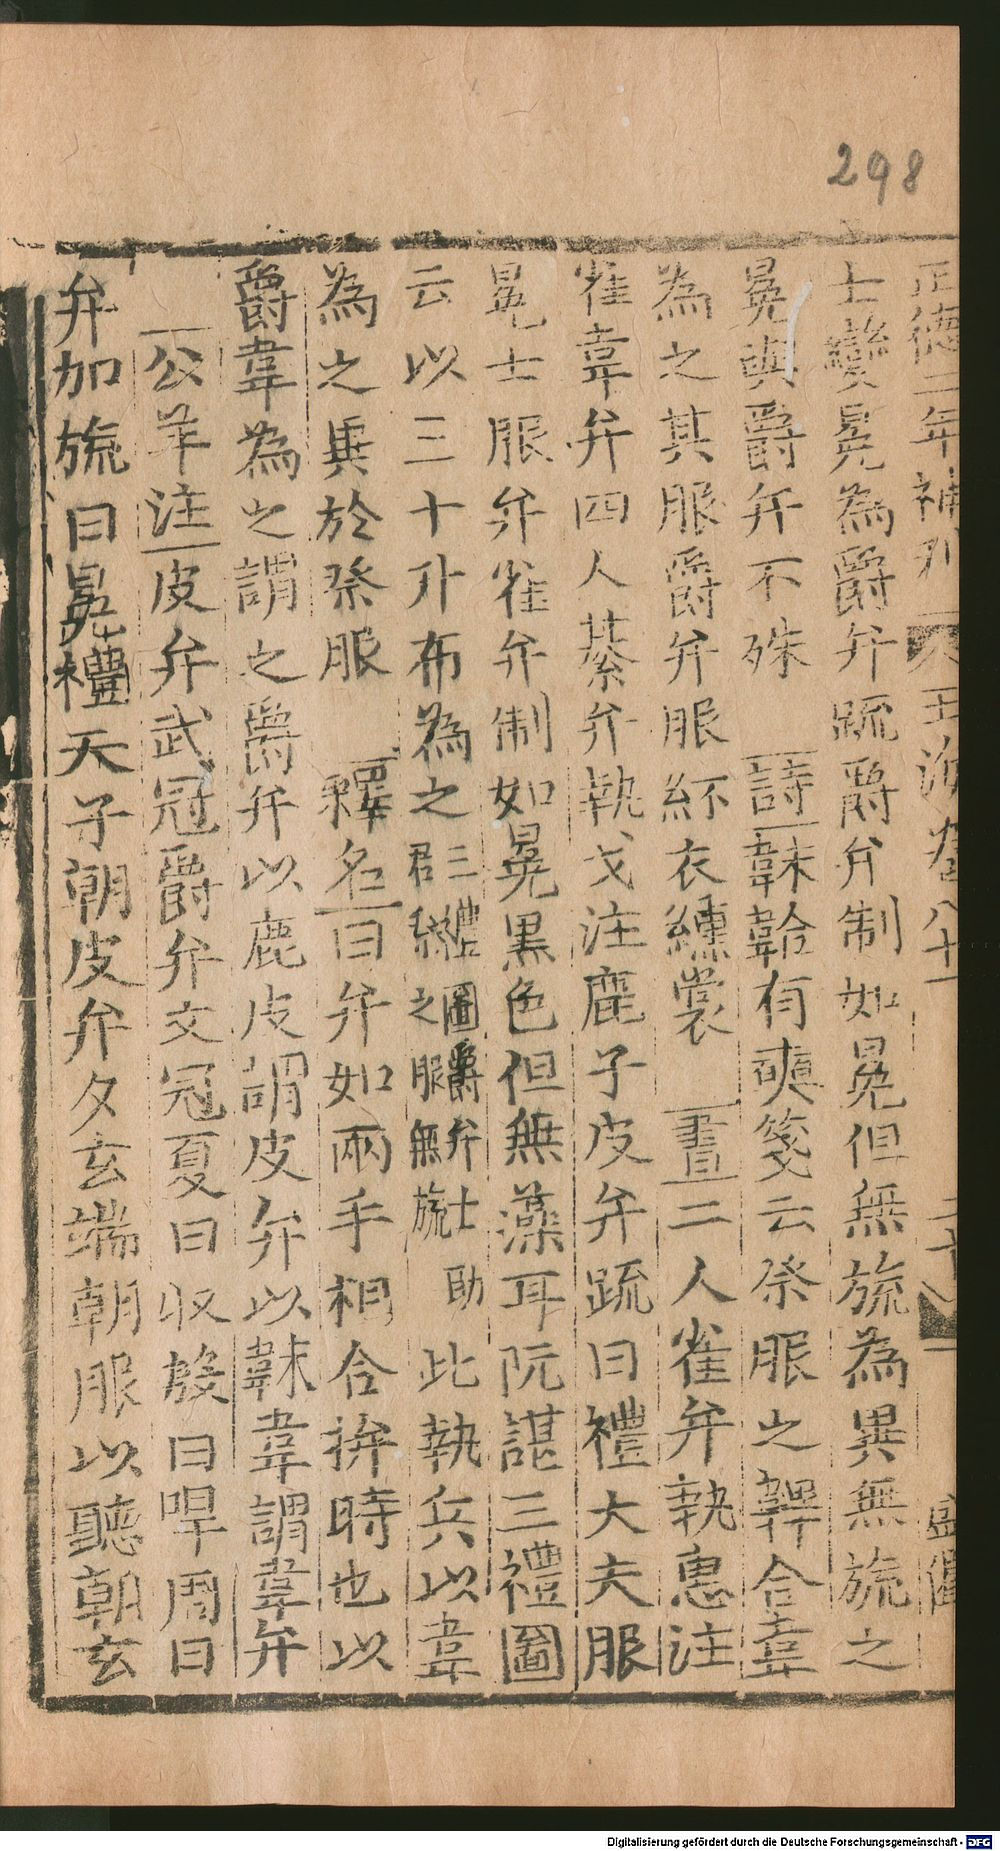 298
正德二年補刊 玉海卷八十一
士變冕為爵弁疏爵弁制如冕但無旒為異無旒之
冕與爵弁不殊 詩韎韐有奭箋云祭服之韠合韋
為之其服爵弁服紂衣纁裳 書二人雀弁執惠注
雀韋弁四人綦弁執戈注鹿子皮弁疏曰禮大夫服
冕士服弁雀弁制如冕黑色但無藻耳阮諶三禮圖
云以三十升布為之三禮圖爵弁士助君祭之服無旒此執兵以韋
為之異於祭服 釋名曰弁如兩手相合抃時也以
爵韋為之謂之爵弁以鹿皮謂皮弁以韎韋謂韋弁
公羊注皮弁武冠爵弁文冠夏曰收殷曰哻周曰
弁加旒曰冕禮天子朝皮弁夕玄端朝服以聽朝玄
Digitalisierung gefördert durch die Deutsche Forschungsgemeinschaft - DFG